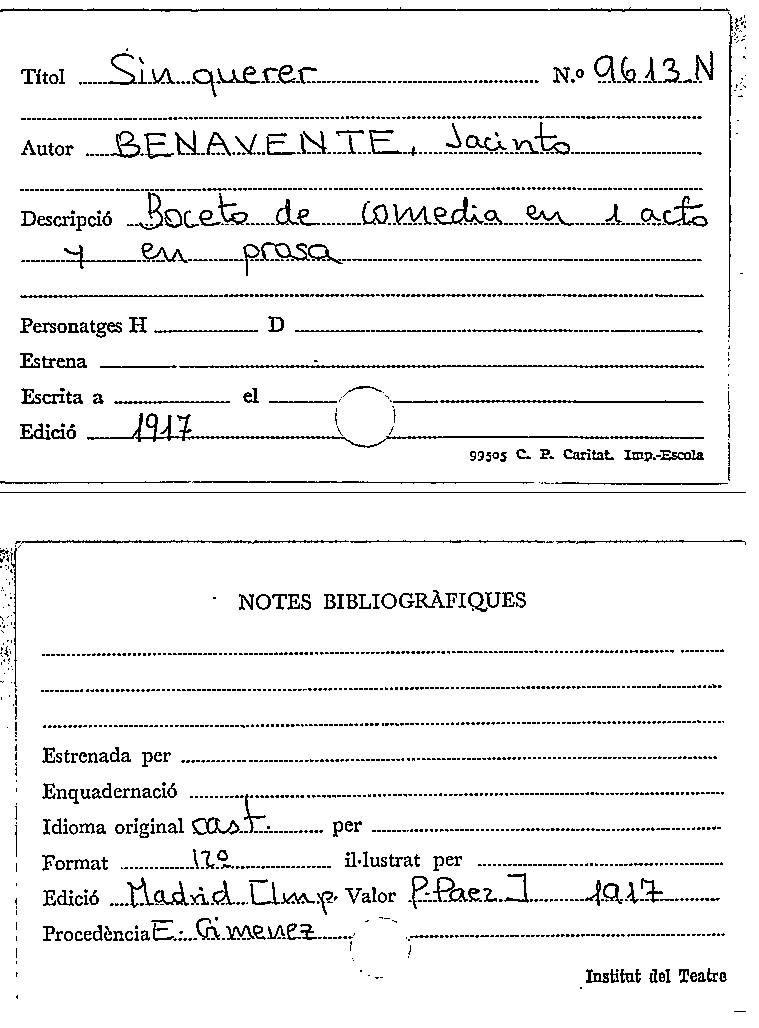 Títol Sin querer N.º 9613 N
Autor BENAVENTE, Jacinto
Descripció Boceto de comedia en 1 acto
y en prosa
Personatges H D
Estrena
Escrita a el
Edició 1917
99505 C. P. Caritat. Imp.-Escola
NOTES BIBLIOGRÀFIQUES
Estrenada per
Enquadernació
Idioma original cast. per
Format 12º il·lustrat per
Edició Madrid [Imp. Valor P. Paez] 1917
Procedència E. Gimenez
Institut del Teatre